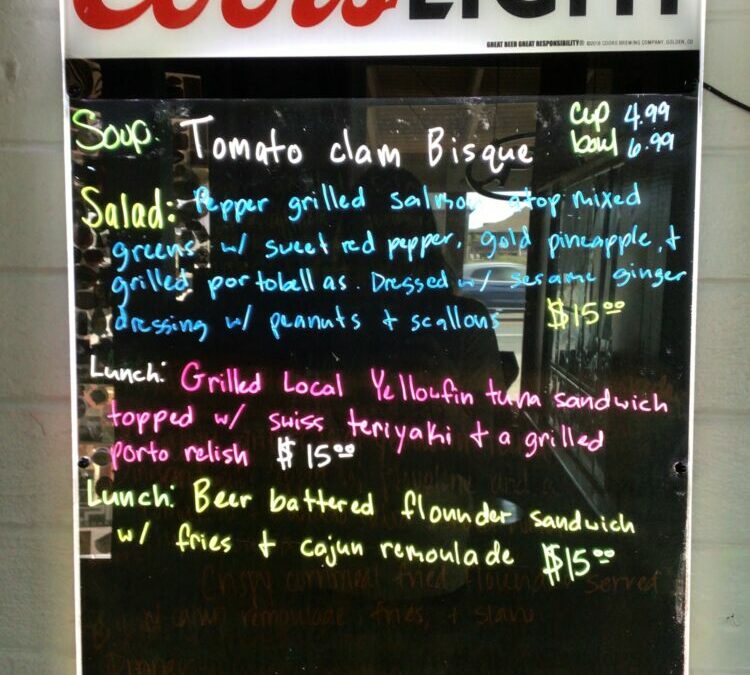 Coors LIGHT
GREAT BEER GREAT RESPONSIBILITY® ©2018 COORS BREWING COMPANY, GOLDEN, CO
Soup: Tomato clam Bisque cup 4.99
bowl 6.99
Salad: Pepper grilled salmon atop mixed
greens w/ sweet red pepper, gold pineapple, +
grilled portobellas. Dressed w/ sesame ginger
dressing w/ peanuts + scallons $15.00
Lunch: Grilled Local Yellowfin tuna sandwich
topped w/ swiss teriyaki + a grilled
porto relish $15.00
Lunch: Beer battered flounder sandwich
w/ fries + cajun remoulade $15.00
Crispy cornmeal fried flounder served
w/ cajun remoulade, fries, + slaw